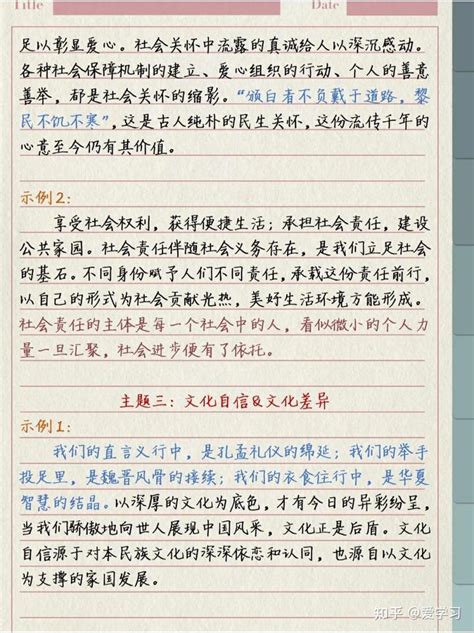 Title
Date
足以彰显爱心。社会关怀中流露的真诚给人以深沉感动。
各种社会保障机制的建立、爱心组织的行动、个人的善意
善举，都是社会关怀的缩影。“颁白者不负戴于道路，黎
民不饥不寒”，这是古人纯朴的民生关怀，这份流传千年的
心意至今仍有其价值。
示例2：
享受社会权利，获得便捷生活；承担社会责任，建设
公共家园。社会责任伴随社会义务存在，是我们立足社会
的基石。不同身份赋予人们不同责任，承载这份责任前行，
以自己的形式为社会贡献光热，美好生活环境方能形成。
社会责任的主体是每一个社会中的人，看似微小的个人力
量一旦汇聚，社会进步便有了依托。
主题三：文化自信&文化差异
示例1：
我们的直言义行中，是孔孟礼仪的绵延；我们的举手
投足里，是魏晋风骨的接续；我们的衣食住行中，是华夏
智慧的结晶。以深厚的文化为底色，才有今日的异彩纷呈，
当我们骄傲地向世人展现中国风采，文化正是后盾。文化
自信源于对本民族文化的深深依恋和认同，也源自以文化
为支撑的家国发展。
知乎 @爱学习